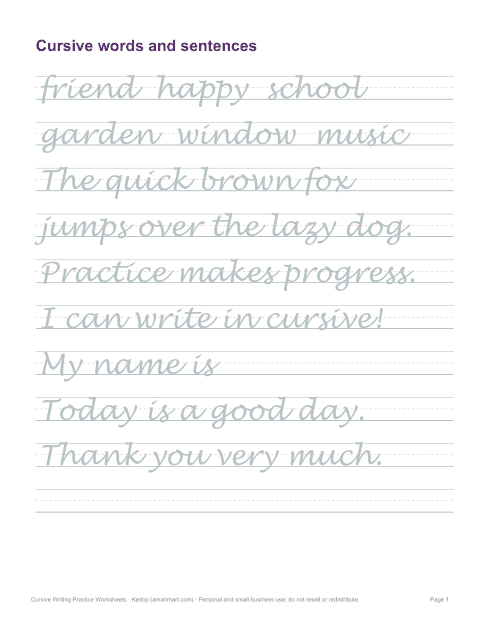 Cursive words and sentences
friend happy school
garden window music
The quick brown fox
jumps over the lazy dog.
Practice makes progress.
I can write in cursive!
My name is
Today is a good day.
Thank you very much.
Cursive Writing Practice Worksheets · Kedop (amanmart.com) · Personal and small-business use; do not resell or redistribute. Page 1